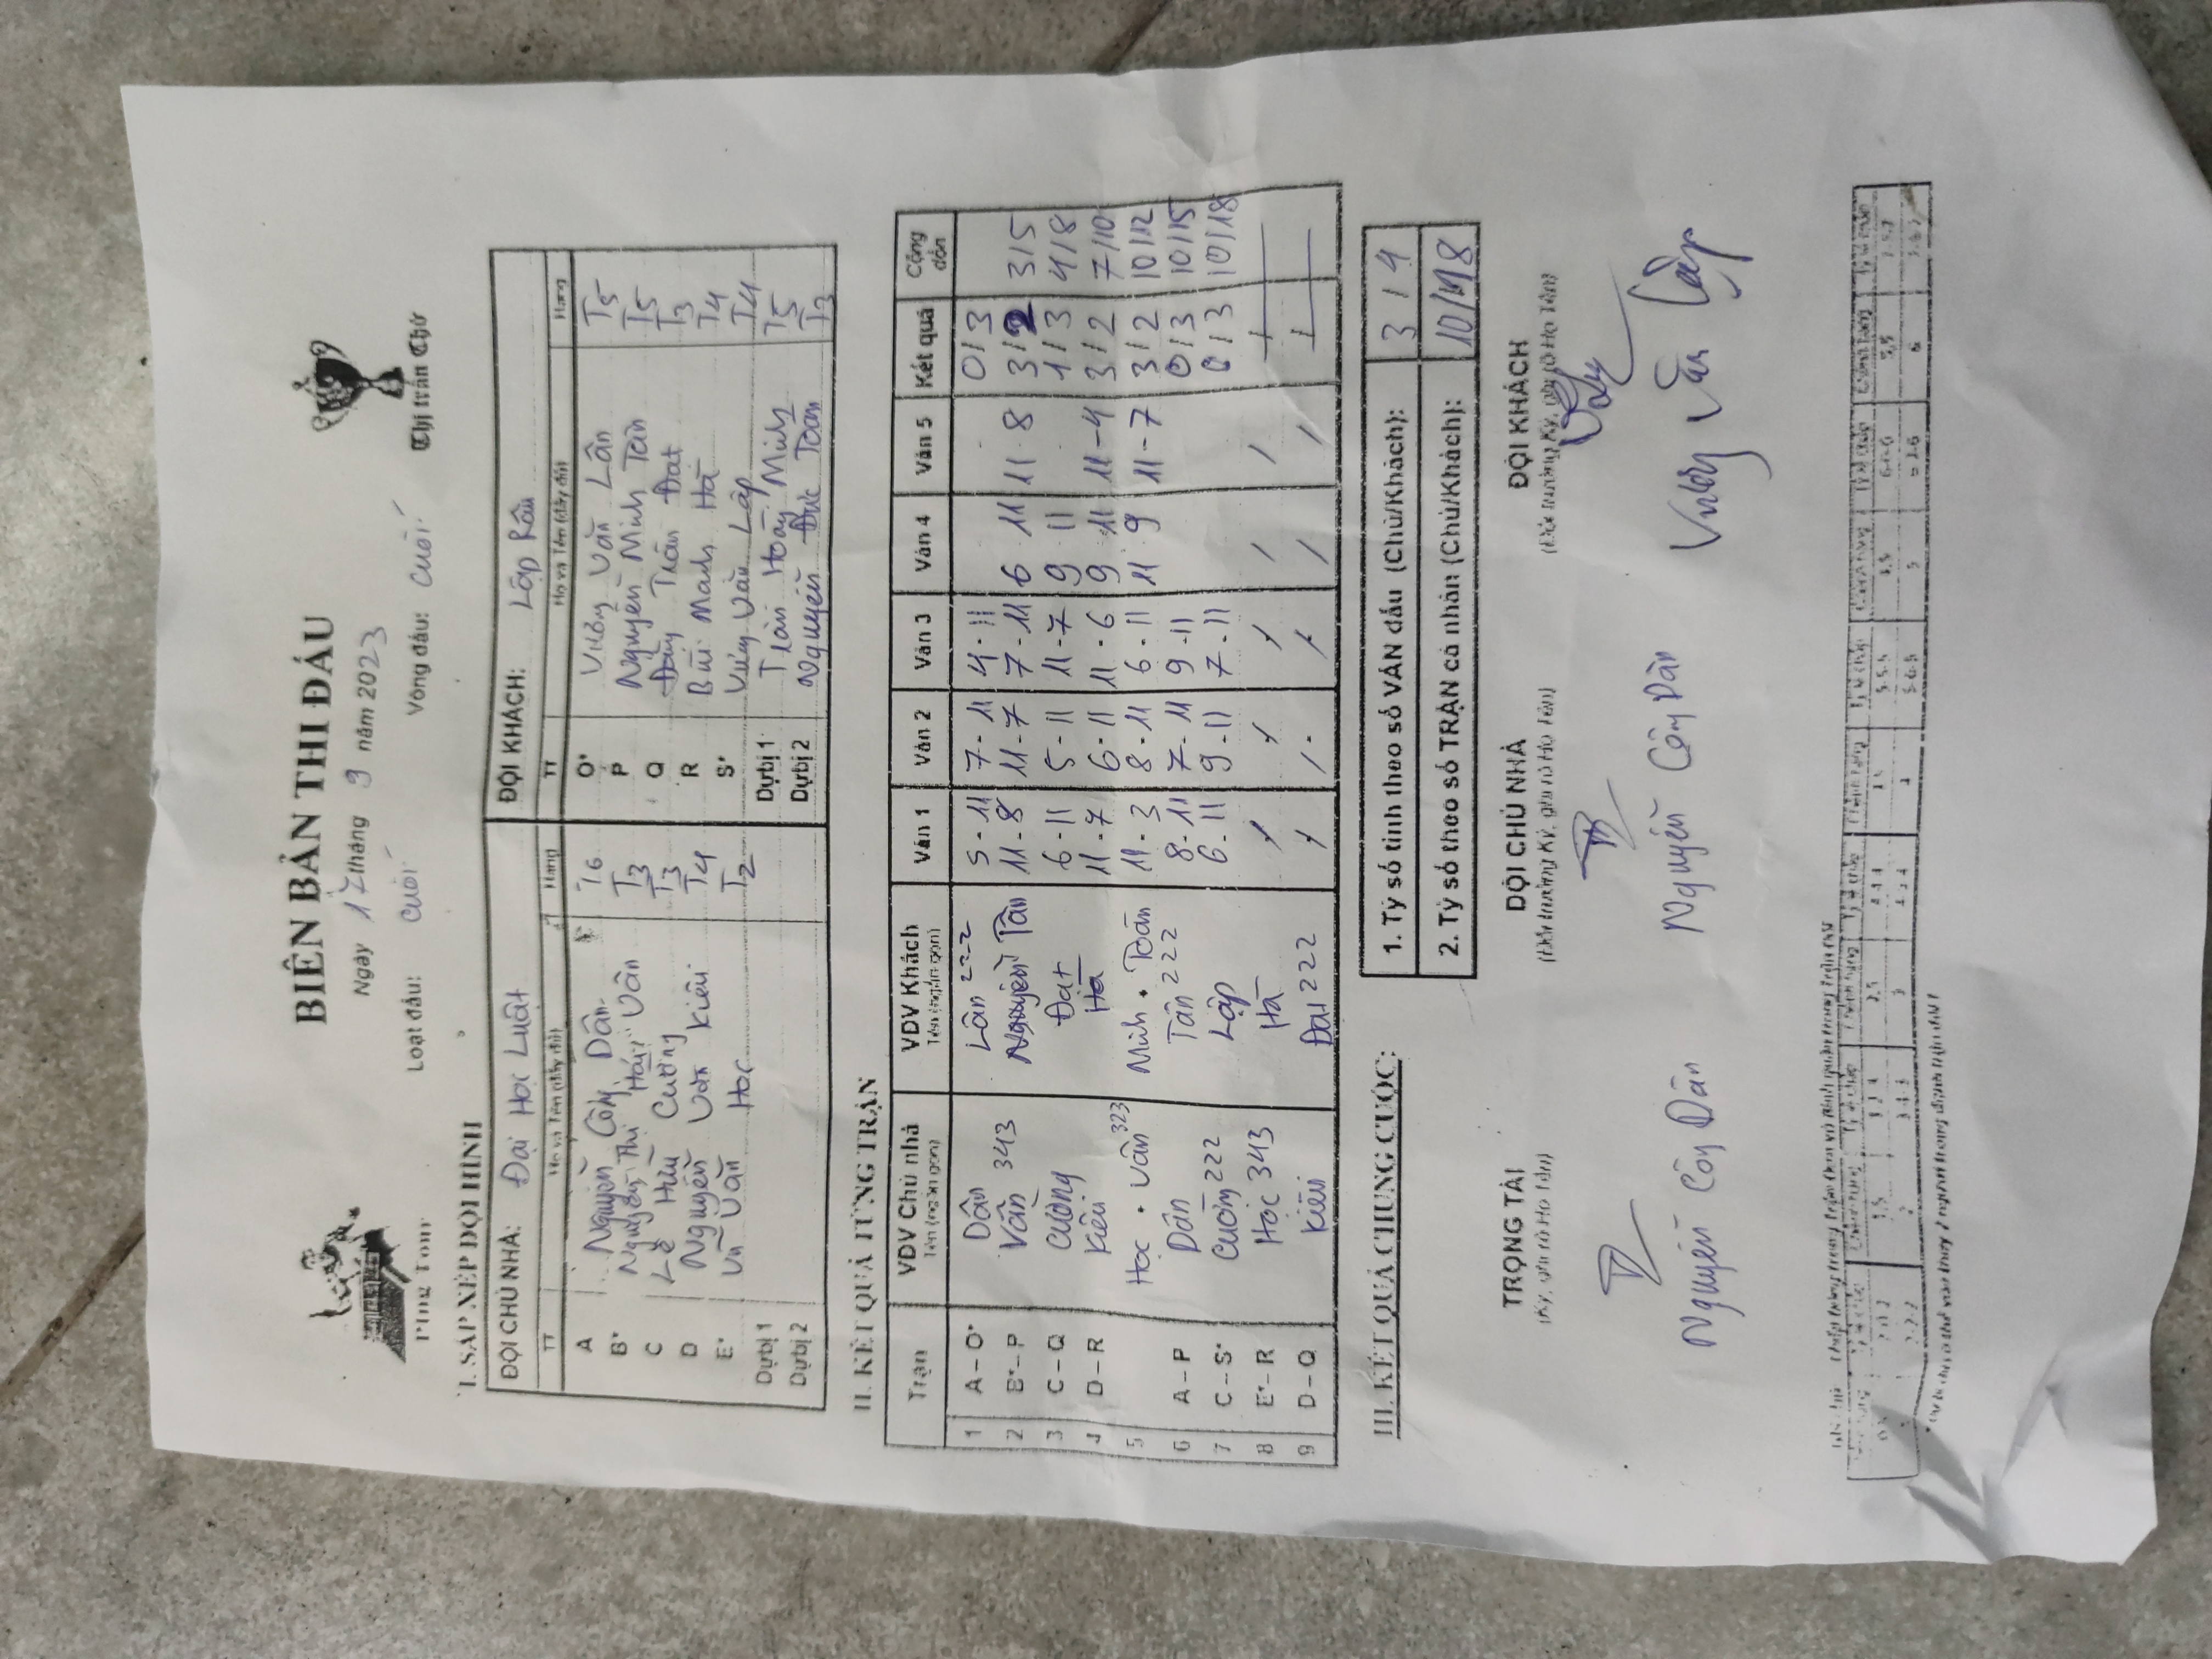 BIÊN BẢN THI ĐẤU
Ngày 17 tháng 9 năm 2023
Loạt đấu: cuối Vòng đấu: cuối
Thị trấn Thứ
I. SẮP XẾP ĐỘI HÌNH
ĐỘI CHỦ NHÀ: Đại Học Luật ĐỘI KHÁCH: Lập Râu
TT Họ và Tên (đầy đủ) Hạng TT Họ và Tên (đầy đủ) Hạng
A Nguyễn Công Dân T6 O* Vương Văn Lân T5
B* Nguyễn Thị Hải Vân T3 P Nguyễn Minh Tân T5
C Lê Hữu Cường T3 Q Đặng Tiến Đạt T3
D Nguyễn Văn Kiên T4 R Bùi Mạnh Hà T4
E* Vũ Văn Học T2 S* Vương Văn Lập T4
Dự bị 1 Dự bị 1 Trần Hoàng Minh T5
Dự bị 2 Dự bị 2 Nguyễn Đức Toàn T3
II. KẾT QUẢ TỪNG TRẬN
Trận VĐV Chủ nhà Tên (ngắn gọn) VĐV Khách Tên (ngắn gọn) Ván 1 Ván 2 Ván 3 Ván 4 Ván 5 Kết quả Cộng dồn
1 A – O* Dân Lân 222 5 - 11 7 - 11 4 - 11 0 / 3
2 B* – P Vân 343 Nguyễn Tân 11 - 8 11 - 7 7 - 11 6 11 11 8 3 / 2 3 / 5
3 C – Q Cường Đạt 6 - 11 5 - 11 11 - 7 9 11 1 / 3 4 / 8
4 D – R Kiên Hà 11 - 7 6 - 11 11 - 6 9 11 11 - 4 3 / 2 7 / 10
5 Học • Vân 323 Minh • Toàn 11 - 3 8 - 11 6 - 11 11 9 11 - 7 3 / 2 10 / 12
6 A – P Dân Tân 222 8 - 11 7 - 11 9 - 11 0 / 3 10 / 15
7 C – S* Cường 222 Lập 6 - 11 9 - 11 7 - 11 0 / 3 10 / 18
8 E* – R Học 343 Hà / / / / / /
9 D – Q Kiên Đạt 222 / / / / / /
III. KẾT QUẢ CHUNG CUỘC:
1. Tỷ số tính theo số VÁN đấu (Chủ/Khách): 3 / 4
2. Tỷ số theo số TRẬN cá nhân (Chủ/Khách): 10 / 18
TRỌNG TÀI ĐỘI CHỦ NHÀ ĐỘI KHÁCH
(Ký, ghi rõ Họ Tên) (Đội trưởng Ký, ghi rõ Họ Tên) (Đội trưởng Ký, ghi rõ Họ Tên)
Nguyễn Công Dân Nguyễn Công Dân Vương Văn Lập